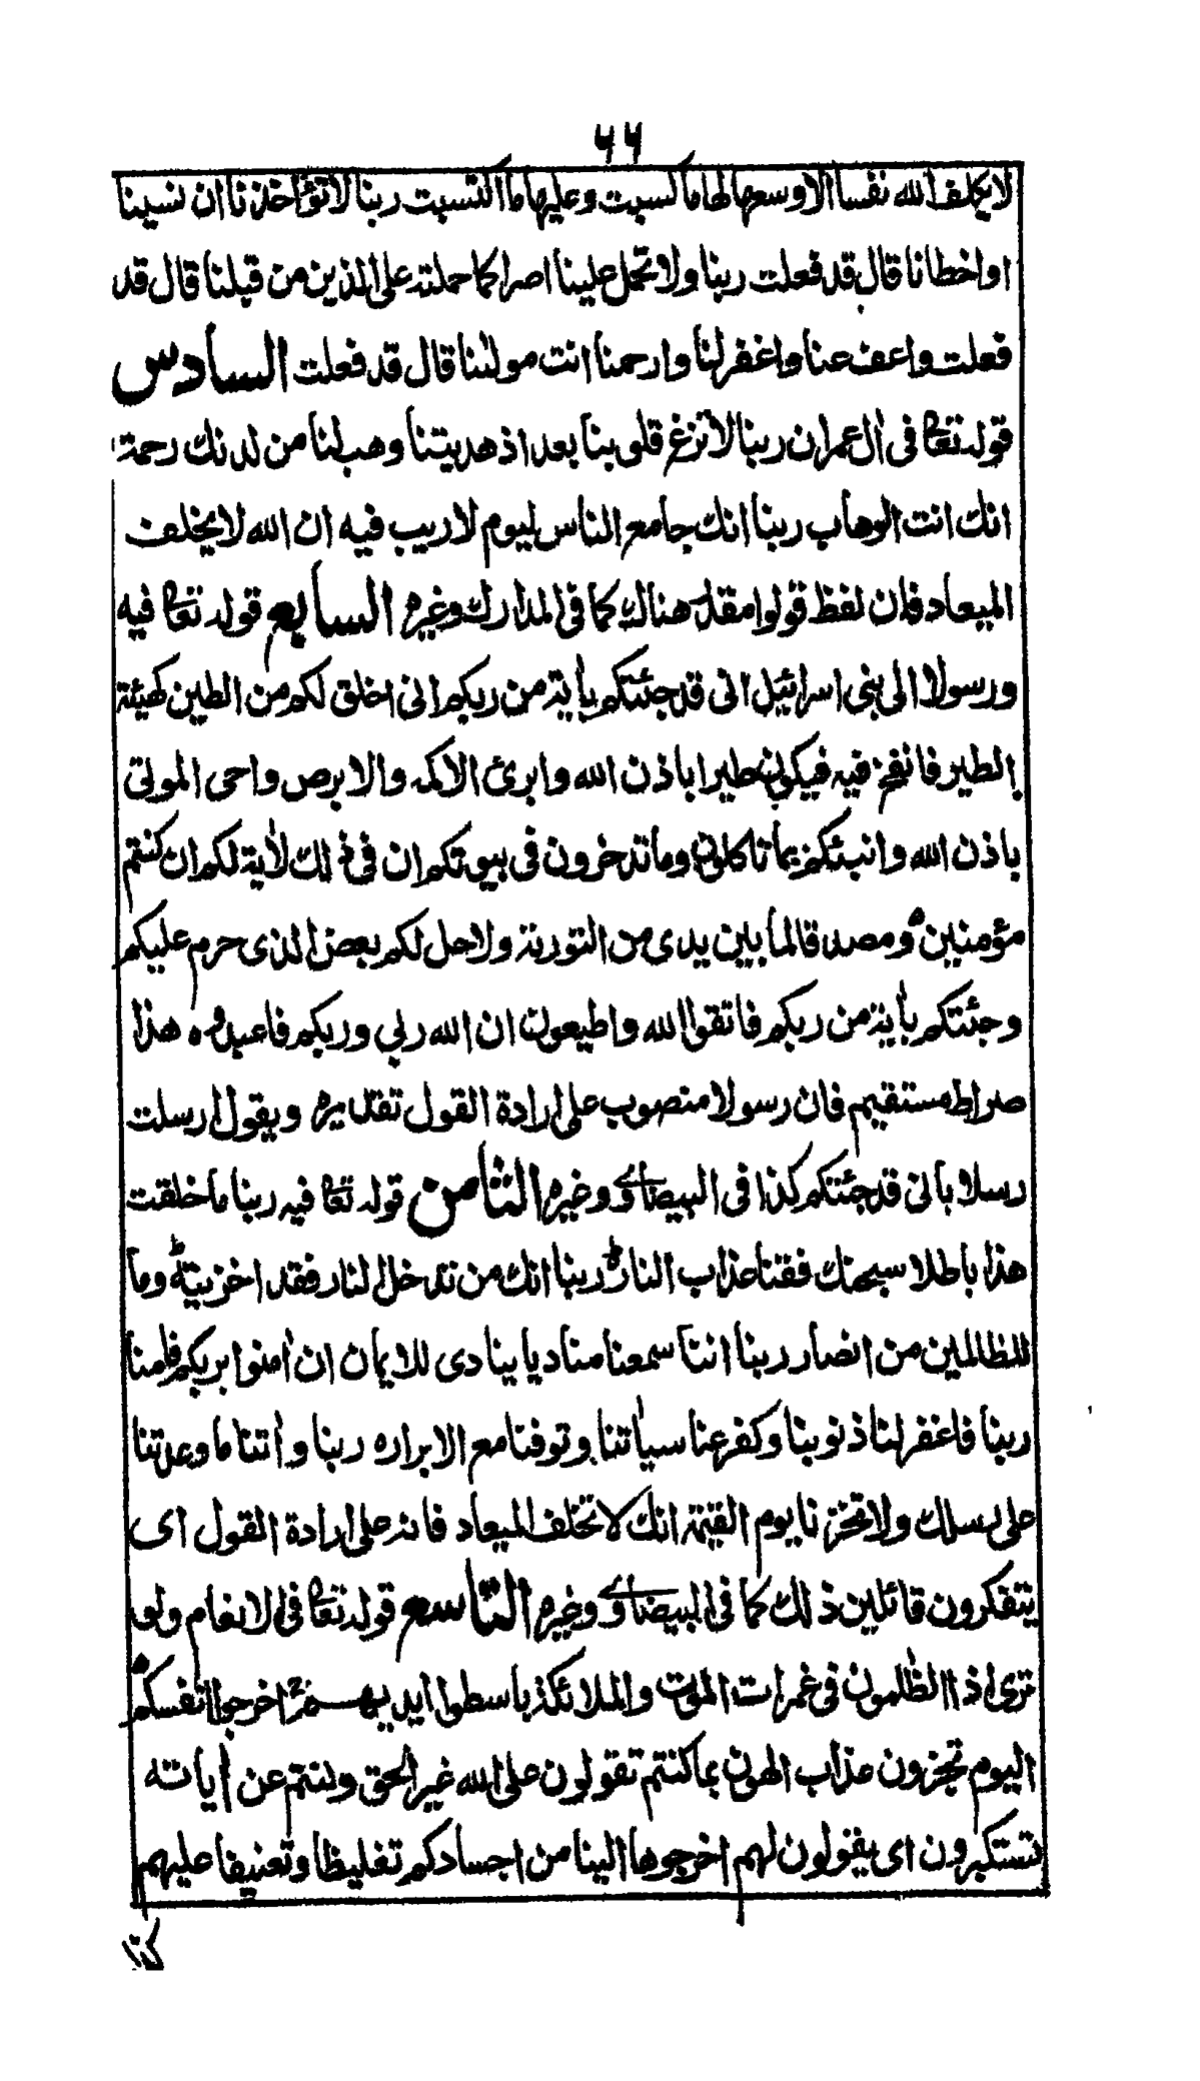 ٦٦
لا يكلف الله نفسا الا وسعها لها ما كسبت وعليها ما اكتسبت ربنا لا تؤاخذنا ان نسينا
او اخطانا قال قد فعلت ربنا ولا تحمل علينا اصرا كما حملته على الذين من قبلنا قال قد
فعلت واعف عنا واغفر لنا وارحمنا انت مولنا قال قد فعلت السادس
قوله تعا فى اٰل عمران ربنا لا تزغ قلوبنا بعد اذ هديتنا وهب لنا من لدنك رحمة
انك انت الوهاب ربنا انك جامع الناس ليوم لا ريب فيه ان الله لا يخلف
الميعاد فان لفظ قولوا مقدر هناك كما فى المدارك وغيره السابع قوله تعا فيه
ورسولا الى بنى اسرائيل انى قد جئتكم باٰية من ربكم انى اخلق لكم من الطين كهيئة
الطير فانفخ فيه فيكون طيرا باذن الله وابرئ الاكمه والابرص واحى الموتى
باذن الله وانبئكم بما تاكلون وما تدخرون فى بيوتكم ان فى ذلك لاٰية لكم ان كنتم
مؤمنين ومصدقا لما بين يدى من التورىة ولاحل لكم بعض الذى حرم عليكم
وجئتكم باٰية من ربكم فاتقوا الله واطيعون ان الله ربي وربكم فاعبدوه هذا
صراط مستقيم فان رسولا منصوب على ارادة القول تقديره ويقول ارسلت
رسلا بانى قد جئتكم كذا فى البيضاوے وغيره الثامن قوله تعا فيه ربنا ما خلقت
هذا باطلا سبحنك فقنا عذاب النار ربنا انك من تدخل النار فقد اخزيته وما
للظالمين من انصار ربنا اننا سمعنا مناديا ينادى للايمان ان اٰمنوا بربكم فاٰمنا
ربنا فاغفر لنا ذنوبنا وكفر عنا سياٰتنا وتوفنا مع الابراره ربنا واٰتنا ما وعدتنا
على رسلك ولا تخزنا يوم القيمة انك لا تخلف الميعاد فانه على ارادة القول اى
يتفكرون قائلين ذلك كما فى البيضاوے وغيره التاسع قوله تعا فى الانعام ولو
ترى اذ الظٰلمون فى غمرات الموت والملائكة باسطوا ايديهم اخرجوا انفسكم
اليوم تجزون عذاب الهون بما كنتم تقولون على الله غير الحق وكنتم عن اياته
تستكبرون اى يقولون لهم اخرجوها الينا من اجسادكم تغليظا وتعنيفا عليهم
كذا